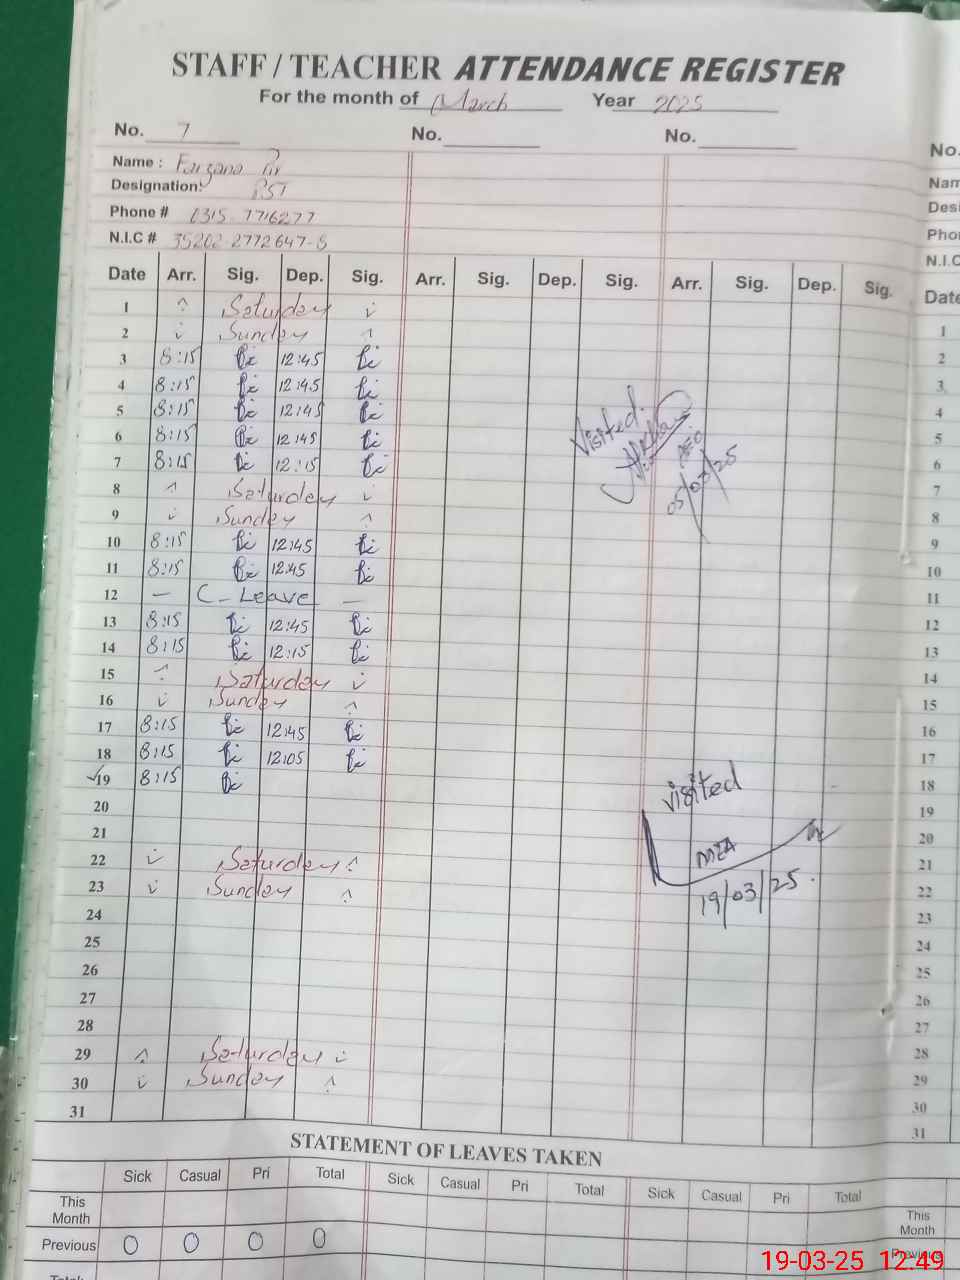 STAFF / TEACHER ATTENDANCE REGISTER
For the month of March Year 2025
No. 7 No. No.
Name : Farzana
Designation: PST
Phone # 0315-7716277
N.I.C # 35202-2772647-8
Date Arr. Sig. Dep. Sig. Arr. Sig. Dep. Sig. Arr. Sig. Dep. Sig.
1 Saturday
2 Sunday
3 8:15 12:45
4 8:15 12:45
5 8:15 12:45
6 8:15 12:45
7 8:15 12:15
8 Saturday
9 Sunday
10 8:15 12:45
11 8:15 12:45
12 — C-Leave —
13 8:15 12:45
14 8:15 12:15
15 Saturday
16 Sunday
17 8:15 12:45
18 8:15 12:05
19 8:15
20
21
22 Saturday
23 Sunday
24
25
26
27
28
29 Saturday
30 Sunday
31
Visited
AEO
05/03/25
visited
MEA
19/03/25.
STATEMENT OF LEAVES TAKEN
Sick Casual Pri Total Sick Casual Pri Total Sick Casual Pri Total
This Month
Previous 0 0 0 0
No.
Nam
Desi
Pho
N.I.C
Date
1
2
3
4
5
6
7
8
9
10
11
12
13
14
15
16
17
18
19
20
21
22
23
24
25
26
27
28
29
30
31
This Month
Previous
19-03-25 12:49